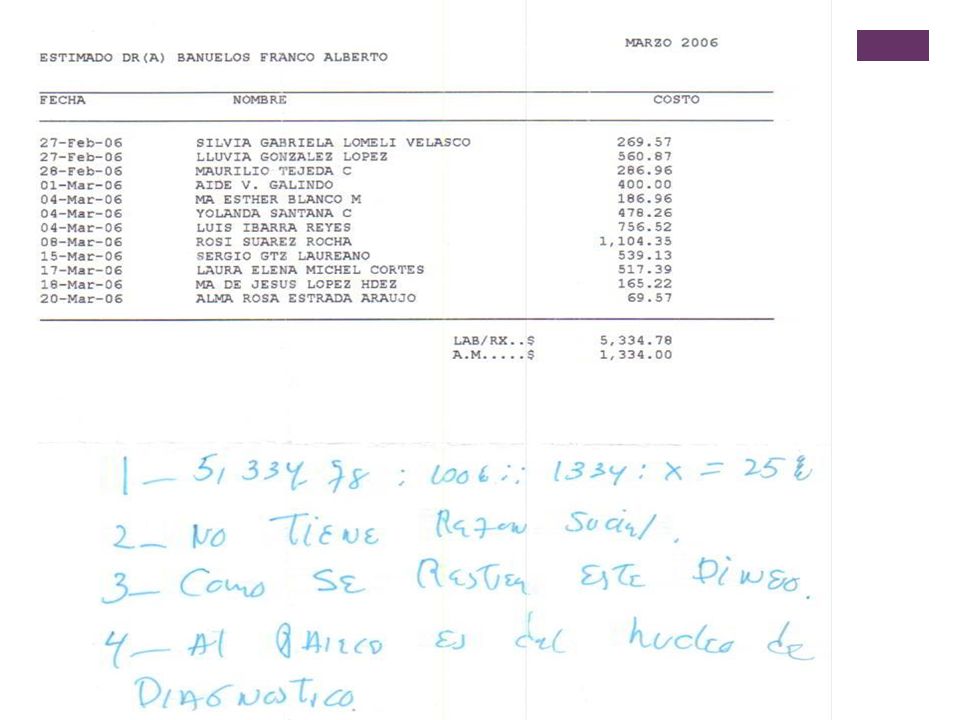 MARZO 2006
ESTIMADO DR(A) BANUELOS FRANCO ALBERTO
FECHA NOMBRE COSTO
27-Feb-06 SILVIA GABRIELA LOMELI VELASCO 269.57
27-Feb-06 LLUVIA GONZALEZ LOPEZ 560.87
28-Feb-06 MAURILIO TEJEDA C 286.96
01-Mar-06 AIDE V. GALINDO 400.00
04-Mar-06 MA ESTHER BLANCO M 186.96
04-Mar-06 YOLANDA SANTANA C 478.26
04-Mar-06 LUIS IBARRA REYES 756.52
08-Mar-06 ROSI SUAREZ ROCHA 1,104.35
15-Mar-06 SERGIO GTZ LAUREANO 539.13
17-Mar-06 LAURA ELENA MICHEL CORTES 517.39
18-Mar-06 MA DE JESUS LOPEZ HDEZ 165.22
20-Mar-06 ALMA ROSA ESTRADA ARAUJO 69.57
LAB/RX..$ 5,334.78
A.M.....$ 1,334.00
1_ 5,334 78 : :: 1334 : x = 25%
2_ NO TIENE Razon Social.
3_ Como SE ESTE
4_ Al es del de
DIAGNOSTICO.